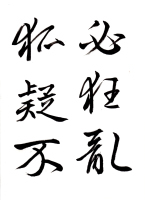 必狂亂
狐疑不